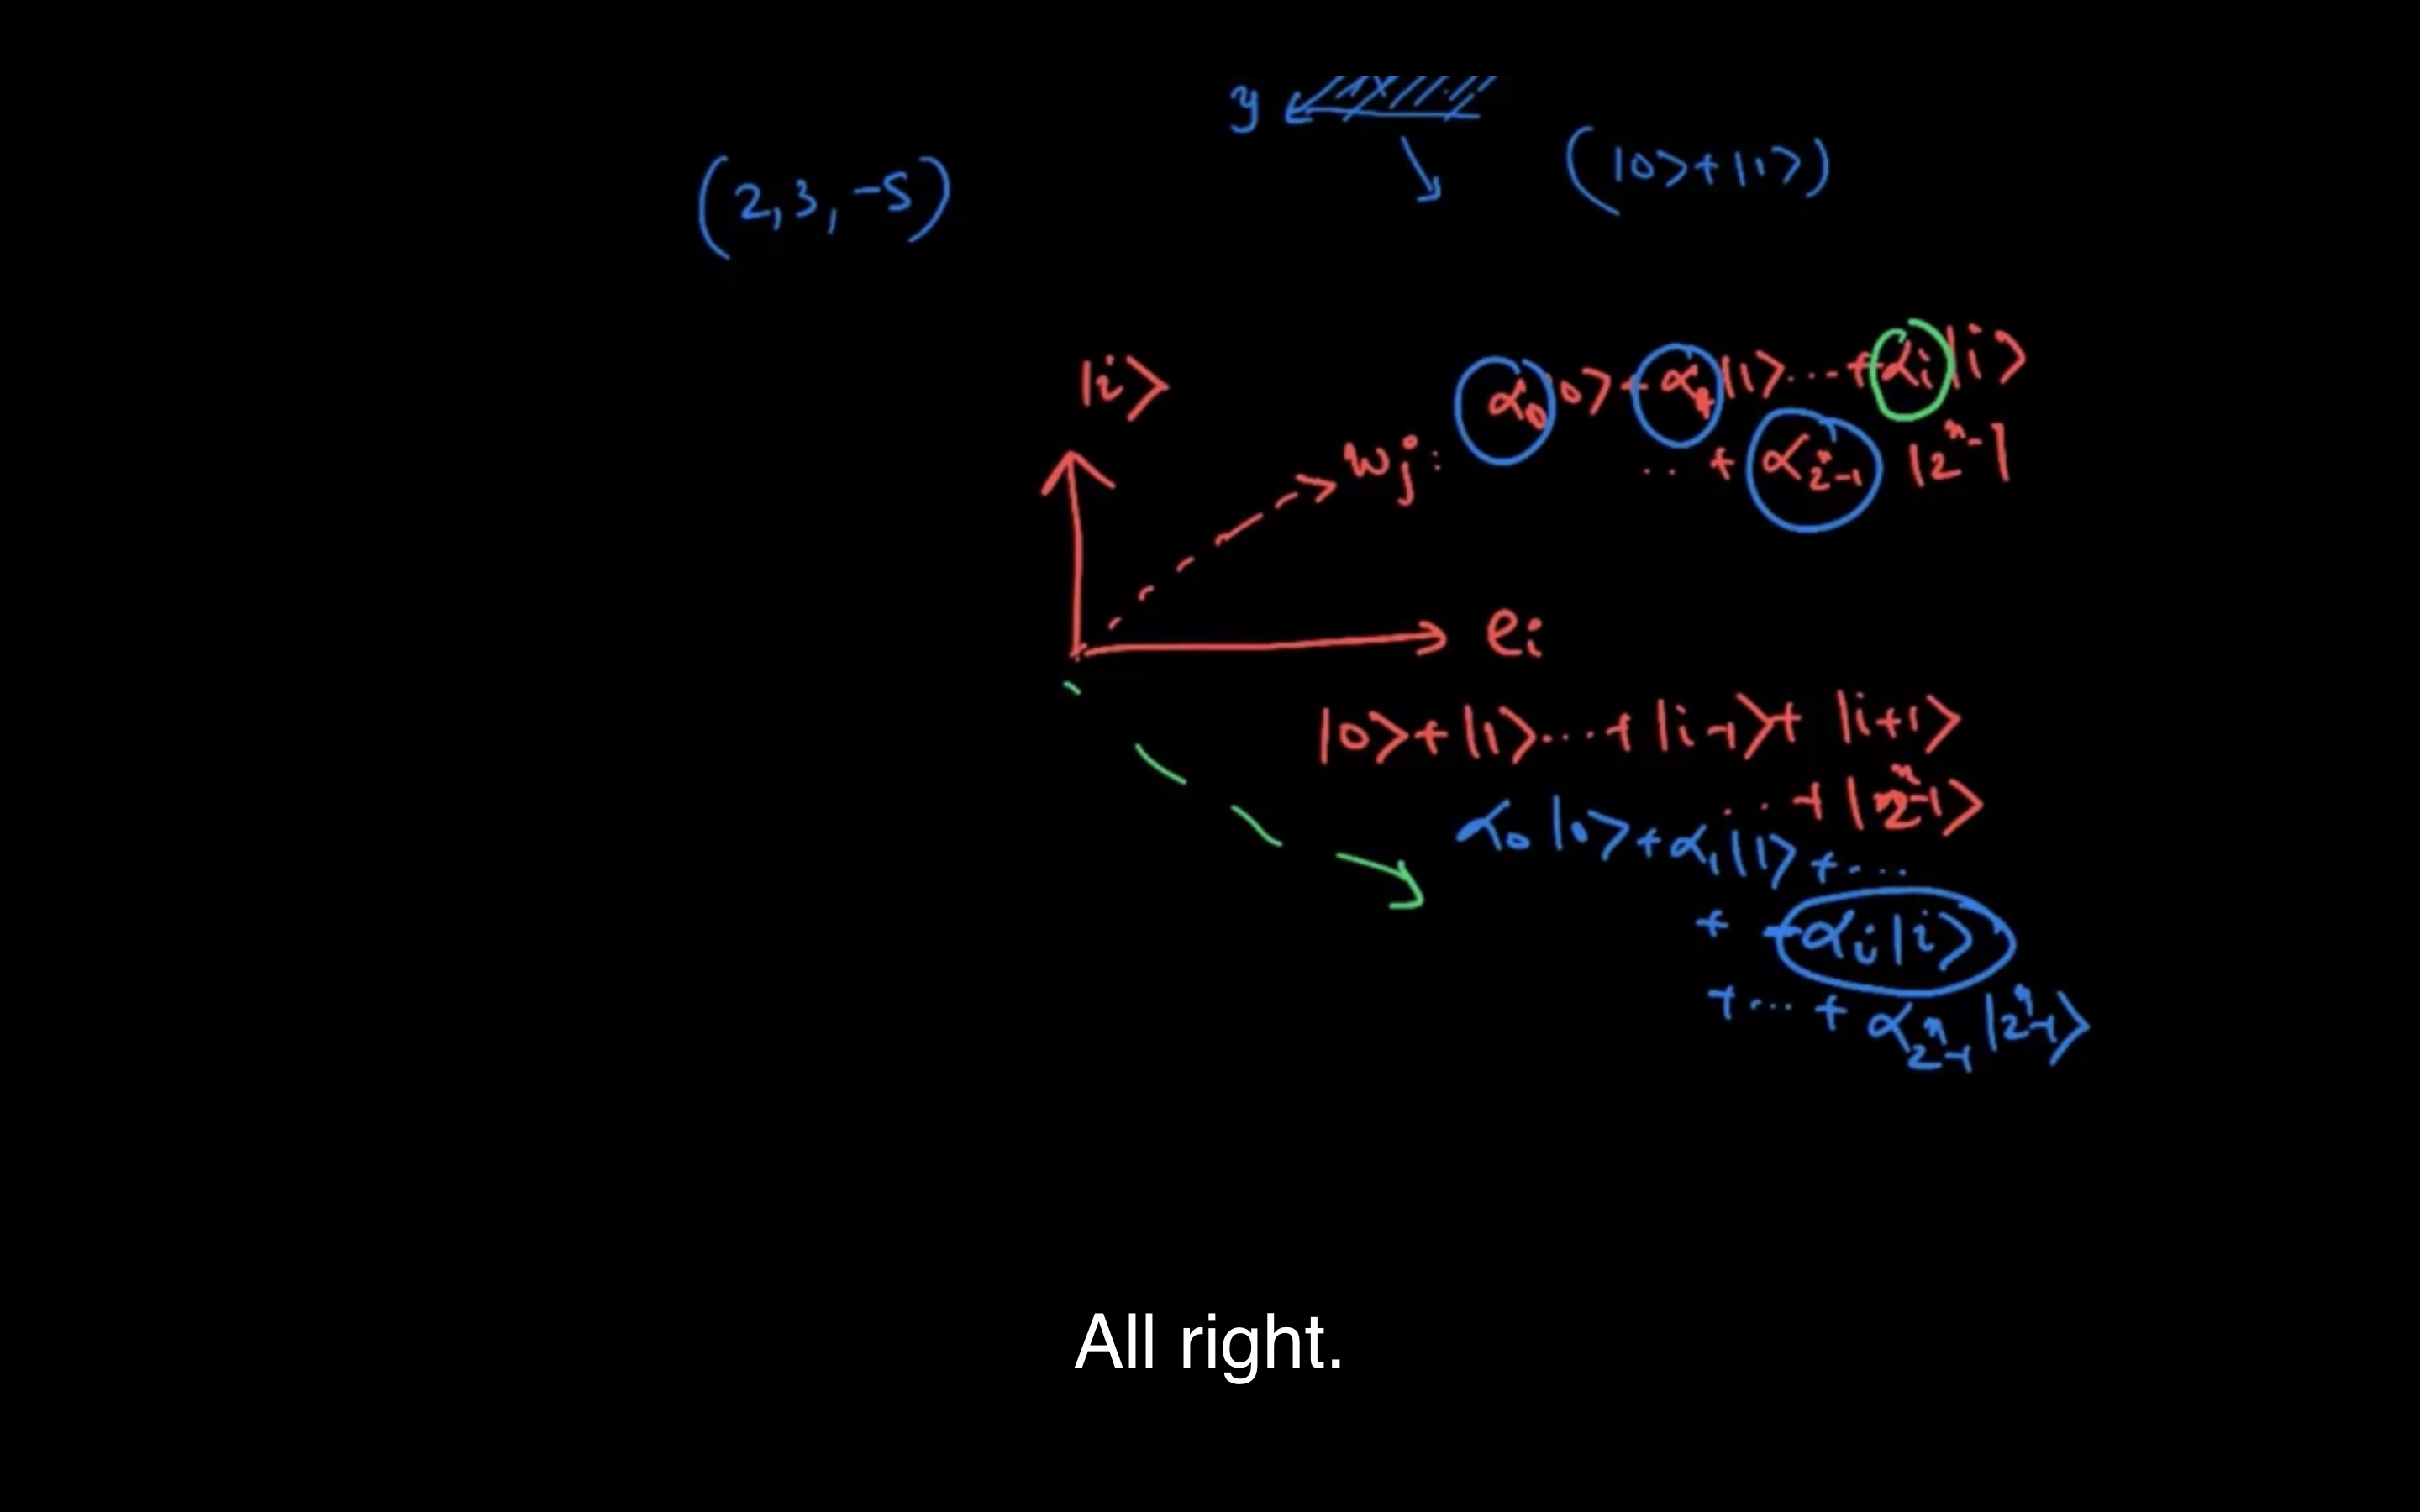 y
(|0>+|1>)
(2,3,-5)
|i>
α₀|0>+α₁|1>...+αᵢ|i>
wj:
..+α₂ⁿ₋₁ |2ⁿ-1
eᵢ
|0>+|1>...+|i-1>+|i+1>
..+|2ⁿ-1>
α₀|0>+α₁|1>+...
+ -αᵢ|i>
+...+α₂ⁿ₋₁|2ⁿ-1>
All right.